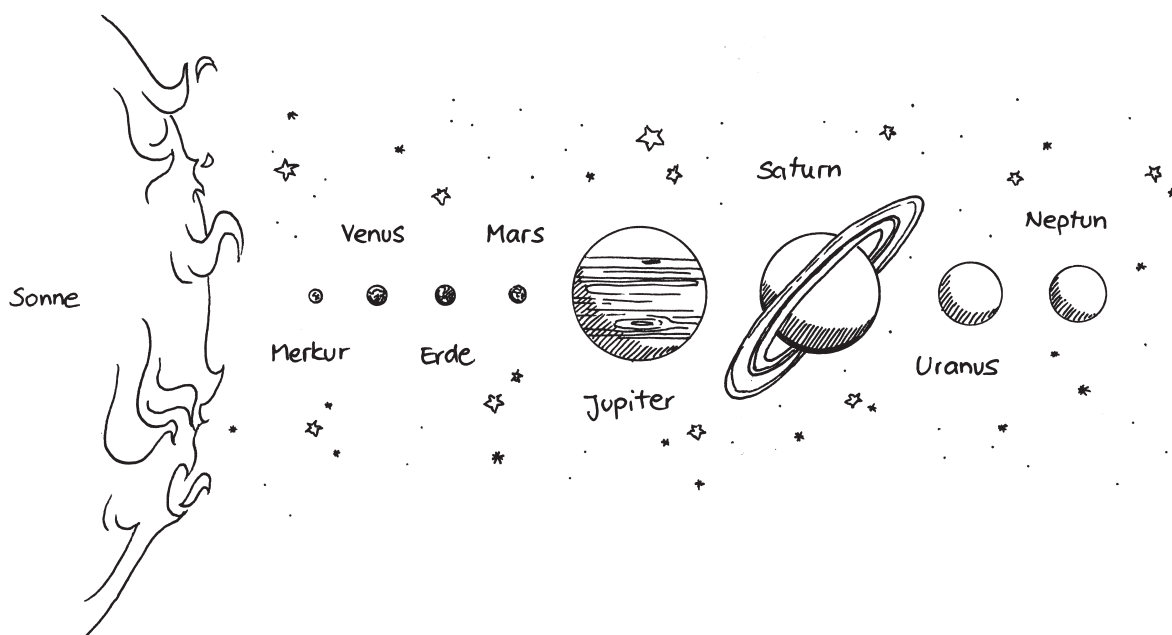 Sonne
Merkur
Venus
Erde
Mars
Jupiter
Saturn
Uranus
Neptun